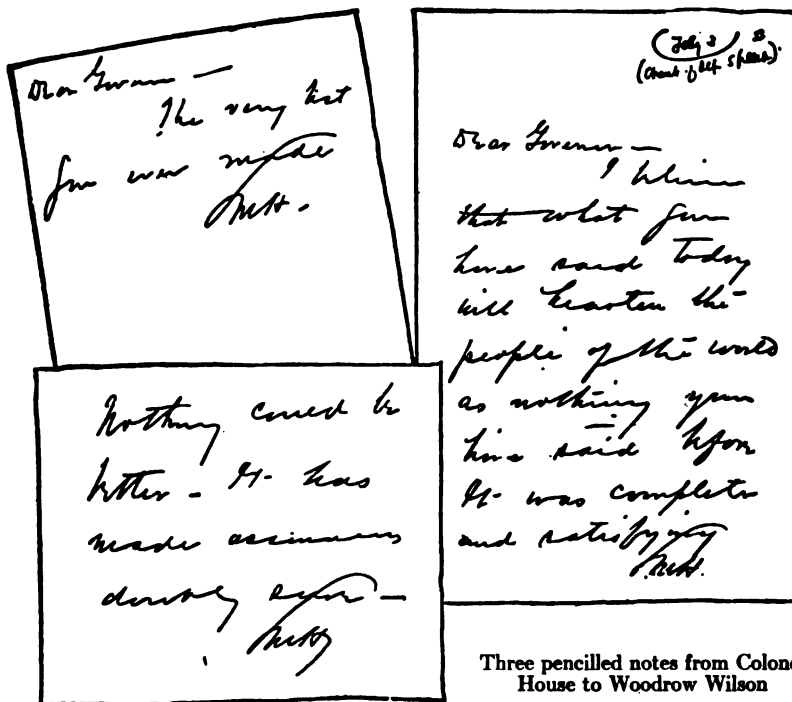 Dear Governor —
The very best
you ever made
E.M.H.
Nothing could be
better – It has
made assurances
doubly sure –
E.M.H.
Dear Governor —
I believe
that what you
have said today
will hearten the
people of the world
as nothing you
have said before
It was complete
and satisfying
E.M.H.
Three pencilled notes from Colone
House to Woodrow Wilson